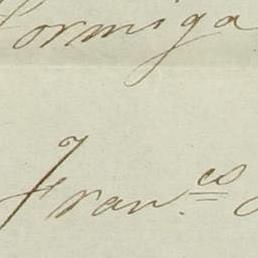 Formiga
Fran.co